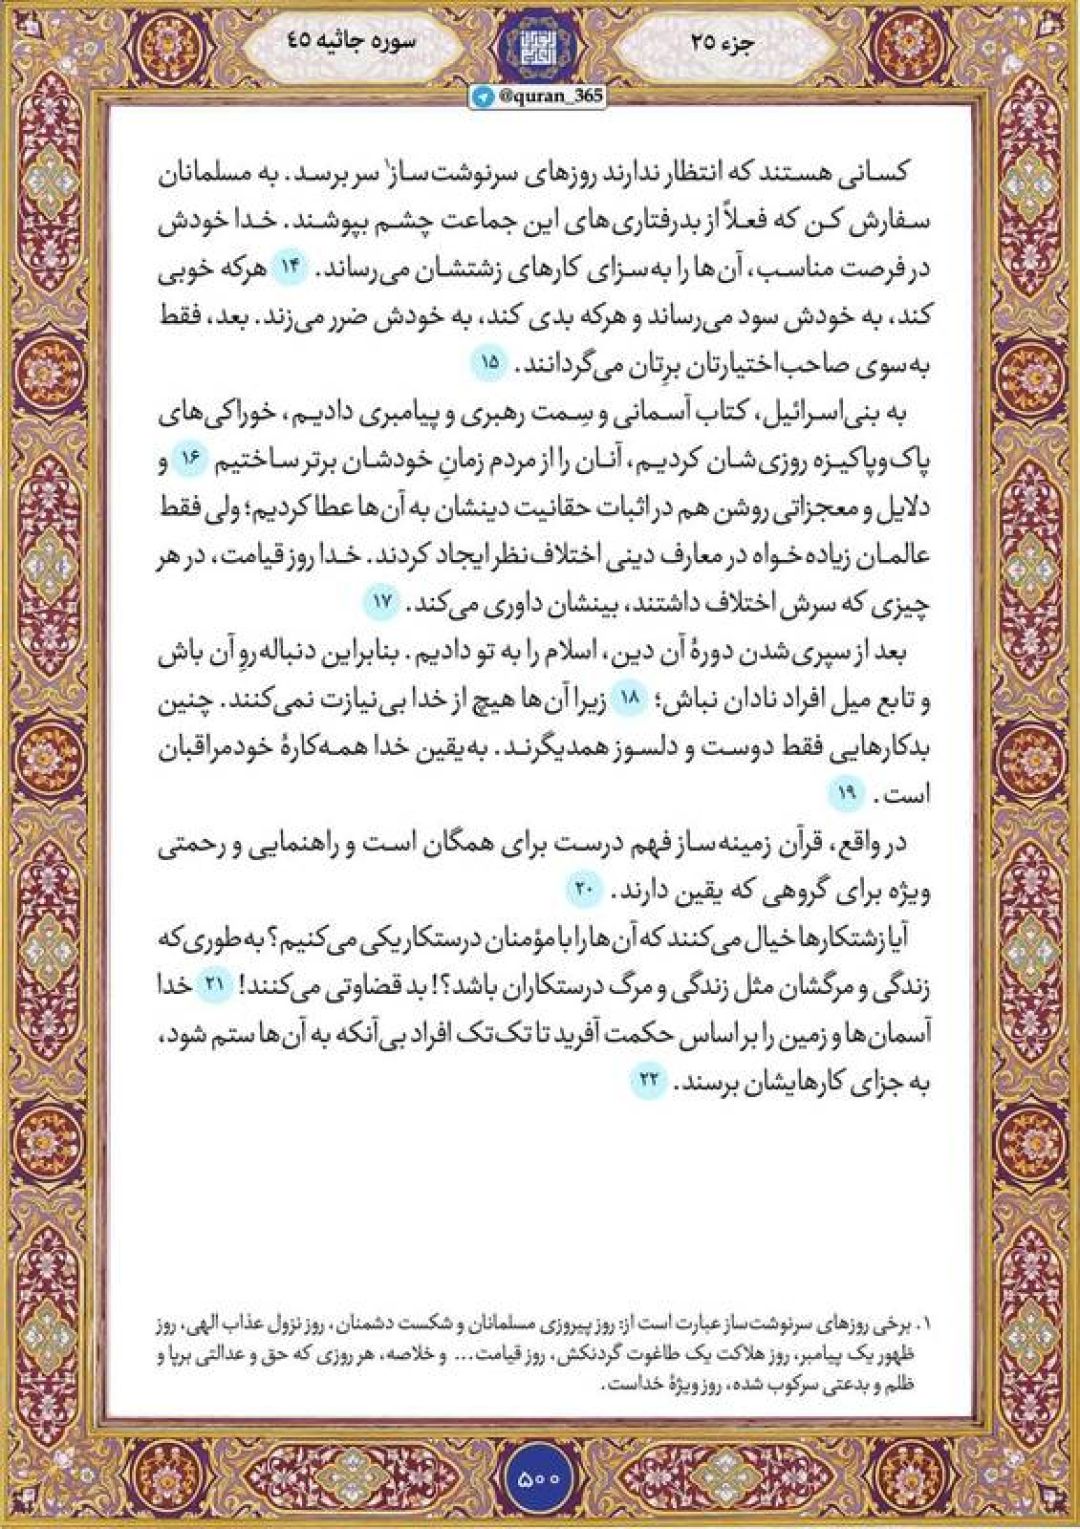 جزء ۲۵
سوره جاثیه ۴۵
@quran_365
کسانی هستند که انتظار ندارند روزهای سرنوشت‌ساز۱ سر برسد. به مسلمانان
سفارش کن که فعلاً از بدرفتاری‌های این جماعت چشم بپوشند. خدا خودش
در فرصت مناسب، آن‌ها را به‌سزای کارهای زشتشان می‌رساند. ۱۴ هرکه خوبی
کند، به خودش سود می‌رساند و هرکه بدی کند، به خودش ضرر می‌زند. بعد، فقط
به‌سوی صاحب‌اختیارتان برِتان می‌گردانند. ۱۵
به بنی‌اسرائیل، کتاب آسمانی و سِمت رهبری و پیامبری دادیم، خوراکی‌های
پاک‌وپاکیزه روزی‌شان کردیم، آنان را از مردم زمانِ خودشان برتر ساختیم ۱۶ و
دلایل و معجزاتی روشن هم در اثبات حقانیت دینشان به آن‌ها عطا کردیم؛ ولی فقط
عالمان زیاده‌خواه در معارف دینی اختلاف‌نظر ایجاد کردند. خدا روز قیامت، در هر
چیزی که سرش اختلاف داشتند، بینشان داوری می‌کند. ۱۷
بعد از سپری‌شدن دورهٔ آن دین، اسلام را به تو دادیم. بنابراین دنباله‌روِ آن باش
و تابع میل افراد نادان نباش؛ ۱۸ زیرا آن‌ها هیچ از خدا بی‌نیازت نمی‌کنند. چنین
بدکارهایی فقط دوست و دلسوز همدیگرند. به‌یقین خدا همه‌کارهٔ خودمراقبان
است. ۱۹
در واقع، قرآن زمینه‌ساز فهم درست برای همگان است و راهنمایی و رحمتی
ویژه برای گروهی که یقین دارند. ۲۰
آیا زشتکارها خیال می‌کنند که آن‌ها را با مؤمنان درستکار یکی می‌کنیم؟ به‌طوری‌که
زندگی و مرگشان مثل زندگی و مرگ درستکاران باشد؟! بد قضاوتی می‌کنند! ۲۱ خدا
آسمان‌ها و زمین را بر اساس حکمت آفرید تا تک‌تک افراد بی‌آنکه به آن‌ها ستم شود،
به جزای کارهایشان برسند. ۲۲
۱. برخی روزهای سرنوشت‌ساز عبارت است از: روز پیروزی مسلمانان و شکست دشمنان، روز نزول عذاب الهی، روز
ظهور یک پیامبر، روز هلاکت یک طاغوت گردنکش، روز قیامت... و خلاصه، هر روزی که حق و عدالتی برپا و
ظلم و بدعتی سرکوب شده، روز ویژهٔ خداست.
۵۰۰